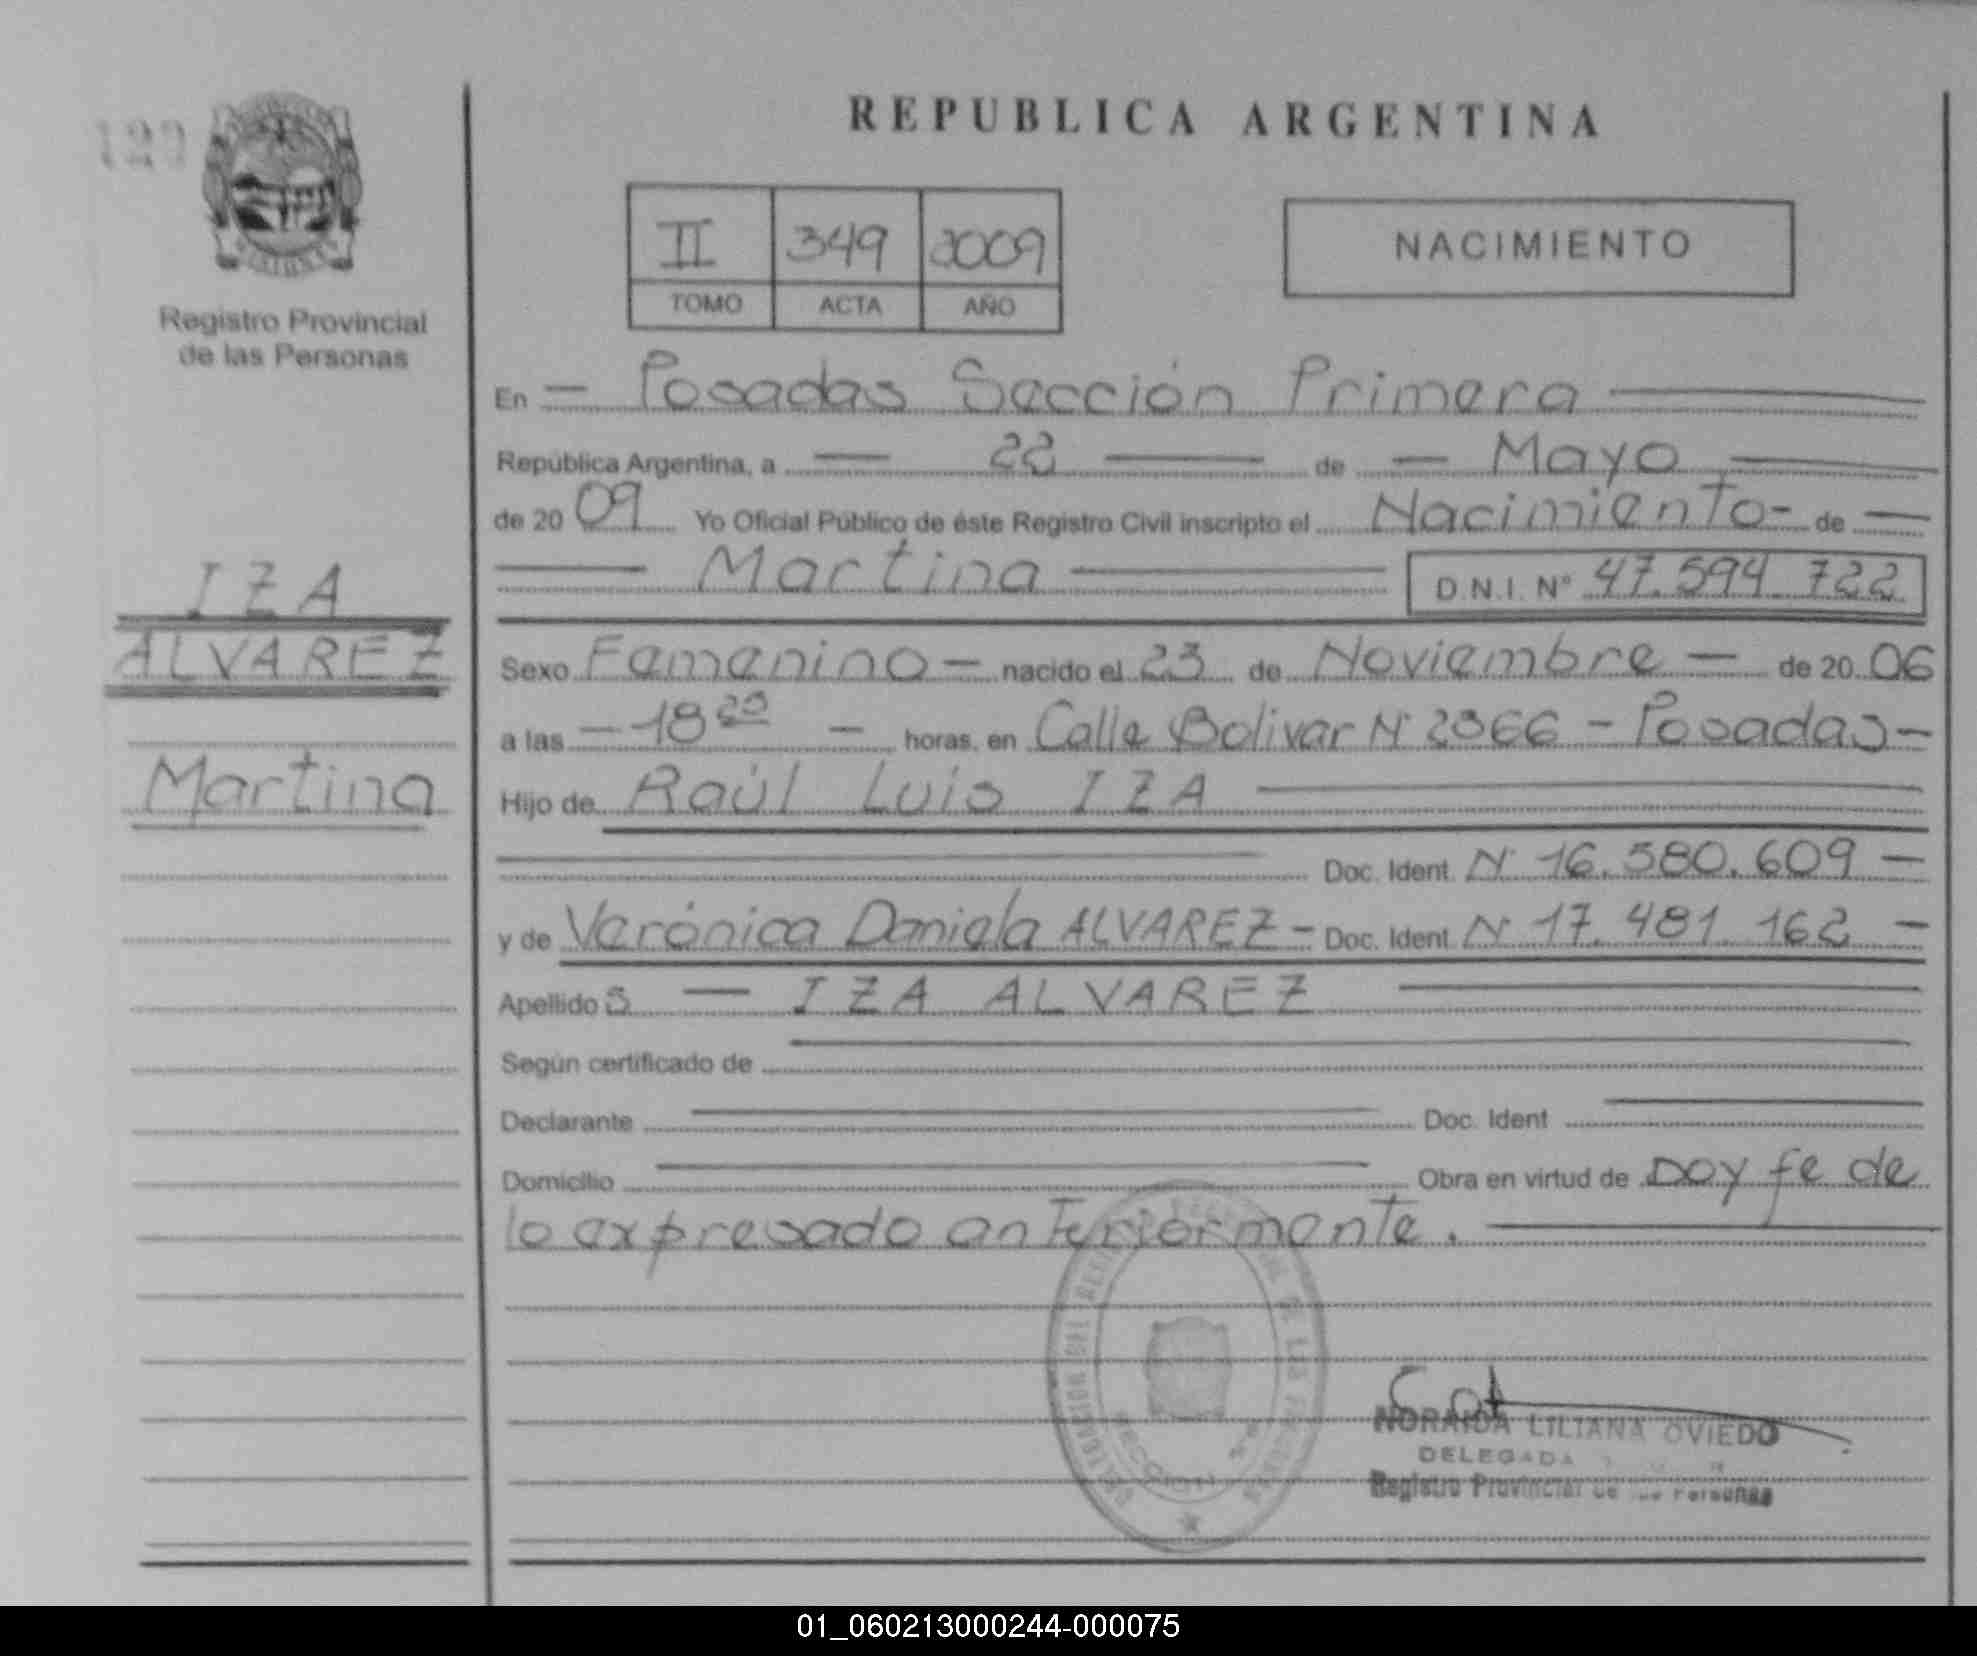 REPUBLICA ARGENTINA
120
II 349 2009
TOMO ACTA AÑO
NACIMIENTO
Registro Provincial
de las Personas
IZA
ALVAREZ
Martina
En — Posadas Sección Primera
República Argentina, a — 22 — de — Mayo —
de 20 09 Yo Oficial Público de éste Registro Civil inscripto el Nacimiento - de —
— Martina — D.N.I. Nº 47.594.722
Sexo Femenino — nacido el 23 de Noviembre — de 20 06
a las — 18 25 — horas, en Calle Bolivar Nº 2366 - Posadas -
Hijo de Raúl Luis IZA
Doc. Ident. Nº 16.580.609 —
y de Verónica Daniela ALVAREZ - Doc. Ident. Nº 17.481.162 —
Apellido S — IZA ALVAREZ
Según certificado de
Declarante Doc. Ident
Domicilio Obra en virtud de Doy fe de
lo expresado anteriormente.
NORAIDA LILIANA OVIEDO
DELEGADA
Registro Provincial de las Personas
01_060213000244-000075